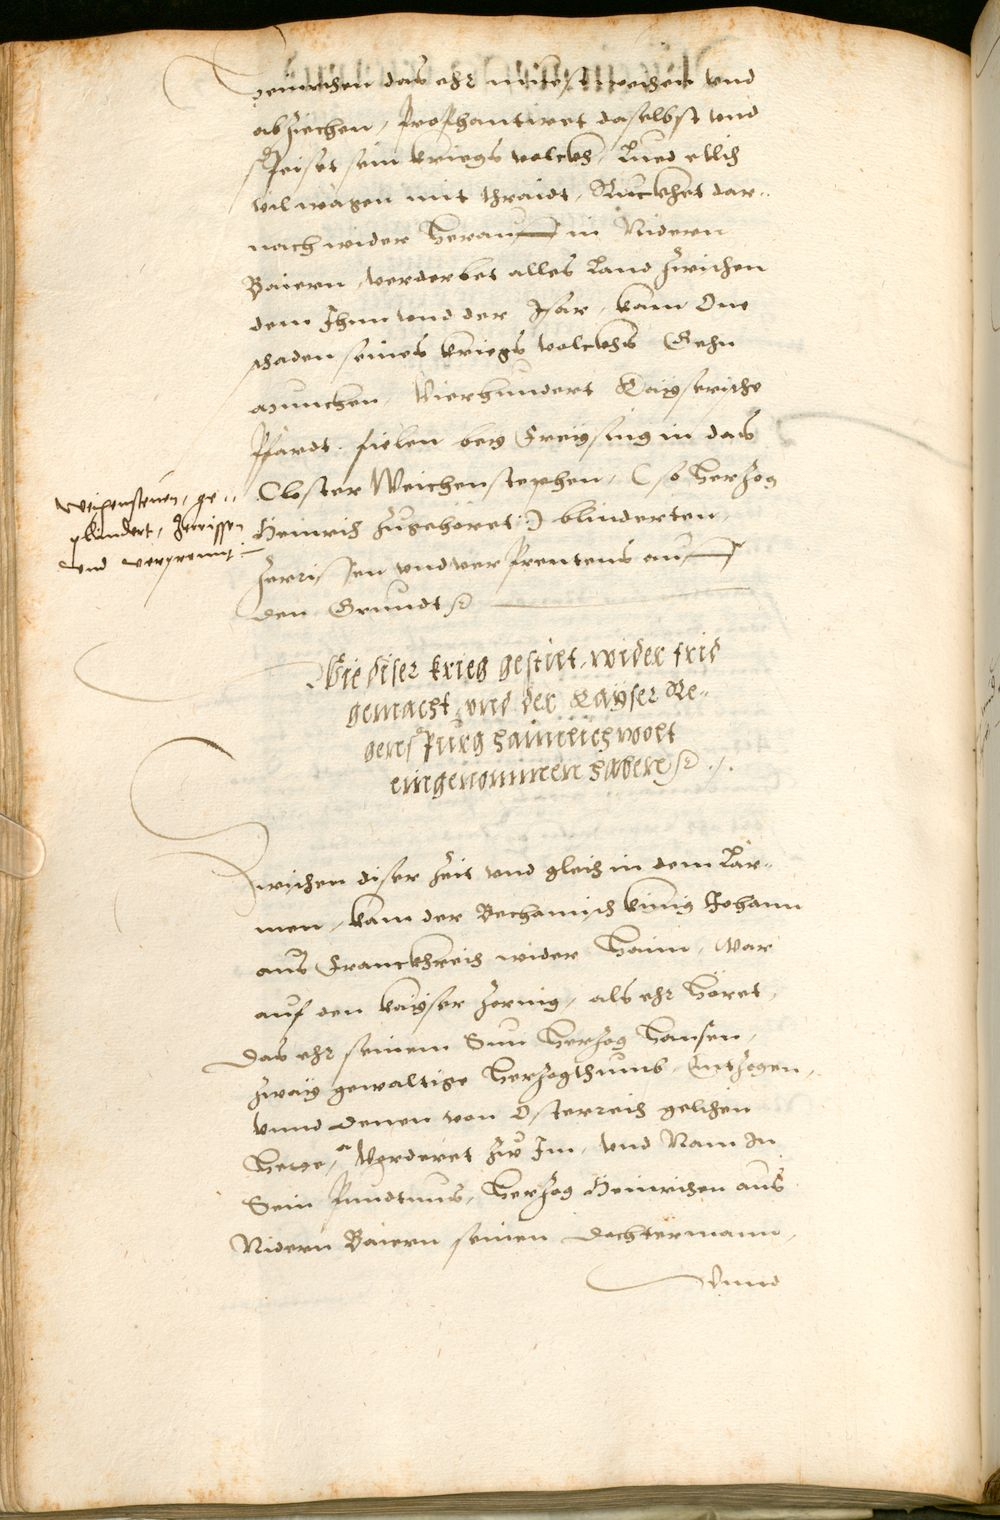 Heinrichen das ehr mueſt weichen vnd
abziechen, Profhantiret daſelbſt vnd
ſpeiſet ſein kriegs volckh, Lued etlich
vil wägen mit thraidt, Ruckhet dar„
nach wider herauß in Nidern
Baiern, verderbet alles Land zwiſchen
dem Ihnn vnd der Iſar, kam One
ſchaden ſeines kriegs volckhs Gehn
München, Vierhundert Kayſeriſche
Pfärdt fielen bey Freyſing in das
Cloſter Weichenſtephen, (ſo Herzog
Heinrich zugehöret:) blinderten,
Zerriſſen vnd verprentens auß
den Grundt ꝛc
Weihenſteven, ge„
plindert, Zerriſſen
vnd verprennt
Wie diſer krieg geſtilt, wider frid
gemacht, vnd der Kayſer Re„
genſpurg haimlich wolt
eingenommen haben ꝛc
Zwiſchen diſer Zeit vnd gleich in dem Lär„
men, kam der Bechamiſch künig Johann
aus Franckhreich wider haim, War
auf den kayſer zornig, als ehr höret,
das ehr ſeinem Sun Herzog Hanſen,
zway gewaltige Herzogthumb, Entzogen,
vnnd denen von Öſterreich gelichen
hette, Vorderet zu Im, vnd Nam In
Sein Pundtnus, Herzog Heinrichen aus
Nidern Baiern ſeinen Dochtermann,
Vnnd